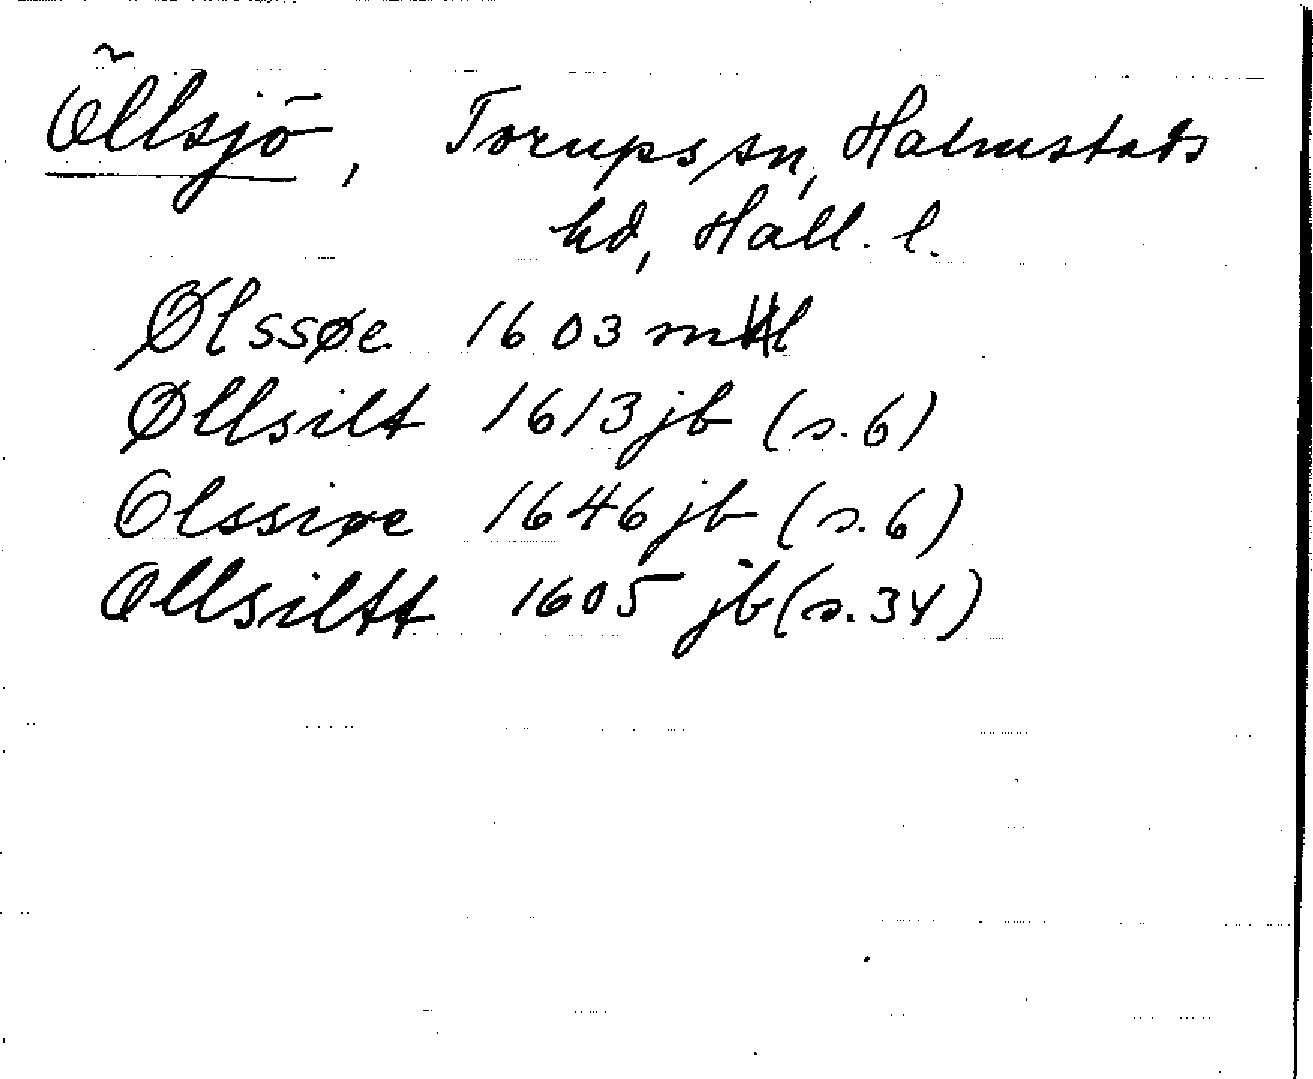 Öllsjö, Torups sn, Halmstads
hd, Hall. l.
Ølssøe 1603
Øllsilt 1613 jb (s. 6)
Olssiøe 1646 jb (s. 6)
Ollsiltt 1605 jb (s. 34)